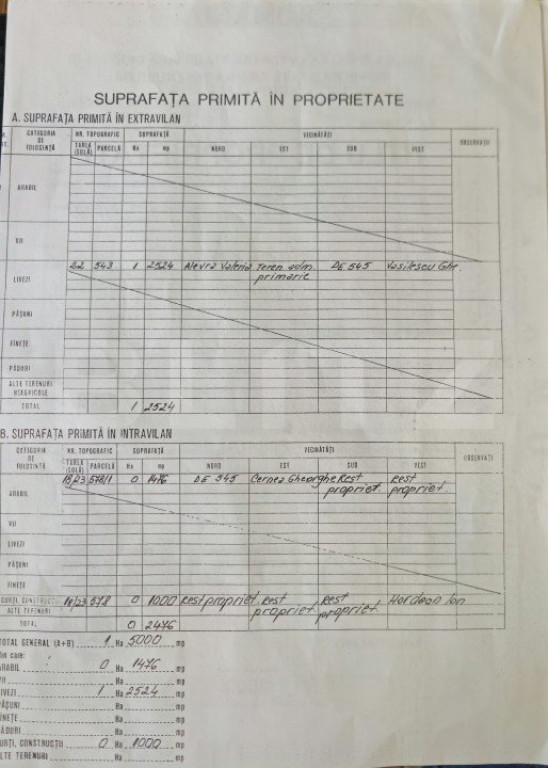 SUPRAFAȚA PRIMITĂ ÎN PROPRIETATE
A. SUPRAFAȚA PRIMITĂ ÎN EXTRAVILAN
CATEGORIA DE FOLOSINȚĂ NR. TOPOGRAFIC SUPRAFAȚĂ VECINĂTĂȚI OBSERVAȚII
TARLA (SOLĂ) PARCELĂ Ha mp NORD EST SUD VEST
ARABIL
VII
22 543 1 2524 Alevra Valeria Teren adm. primarie DE 545 Vasilescu Ghe
LIVEZI
PĂȘUNI
FÎNEȚE
PĂDURI
ALTE TERENURI NEAGRICOLE
TOTAL 1 2524
B. SUPRAFAȚA PRIMITĂ ÎN INTRAVILAN
CATEGORIA DE FOLOSINȚĂ NR. TOPOGRAFIC SUPRAFAȚĂ VECINĂTĂȚI OBSERVAȚII
TARLA (SOLĂ) PARCELĂ Ha mp NORD EST SUD VEST
18/23 578/1 0 1476 DE 545 Cernea Gheorghe Rest propriet. Rest propriet.
ARABIL
VII
LIVEZI
PĂȘUNI
FÎNEȚE
CURȚI, CONSTRUCȚII 18/23 578 0 1000 Rest propriet. Rest propriet. Rest propriet. Ion
ALTE TERENURI
TOTAL 0 2476
TOTAL GENERAL (A+B) 1 Ha 5000 mp
din care:
ARABIL 0 Ha 1476 mp
VII Ha mp
LIVEZI 1 Ha 2524 mp
PĂȘUNI Ha mp
FÎNEȚE Ha mp
PĂDURI Ha mp
CURȚI, CONSTRUCȚII 0 Ha 1000 mp
ALTE TERENURI Ha mp